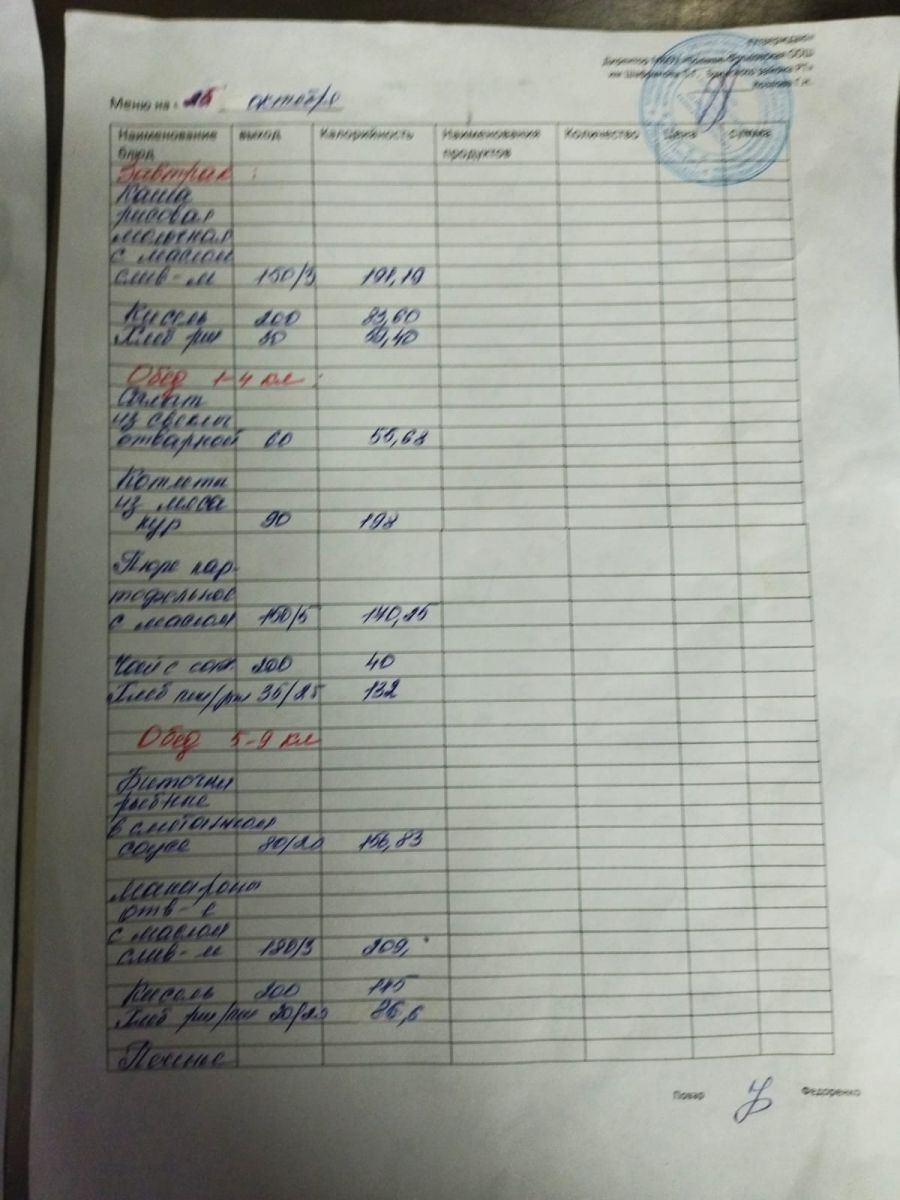 Утверждаю
Директор
Меню на « 25 октября
Наименование блюд выход Калорийность Наименования продуктов Количество Цена сумма
Завтрак :
Каша
рисовая
молочная
с маслом
слив-м 150/3 191,19
Кисель 200 83,60
Хлеб рж 30 59,40
Обед 1-4 кл :
Салат
из свеклы
отварной 60 55,68
Котлета
из мяса
кур 90 198
Пюре кар-
тофельное
с маслом 150/5 140,25
Чай с сах 200 40
Хлеб пш/рж 35/25 132
Обед 5-9 кл
Биточки
рыбные
в сметанном
соусе 80/20 156,83
Макароны
отв-е
с маслом
слив-м 180/3 209,
Кисель 200 145
Хлеб рж/пш 30/20 86,6
Печенье
Повар Федоренко